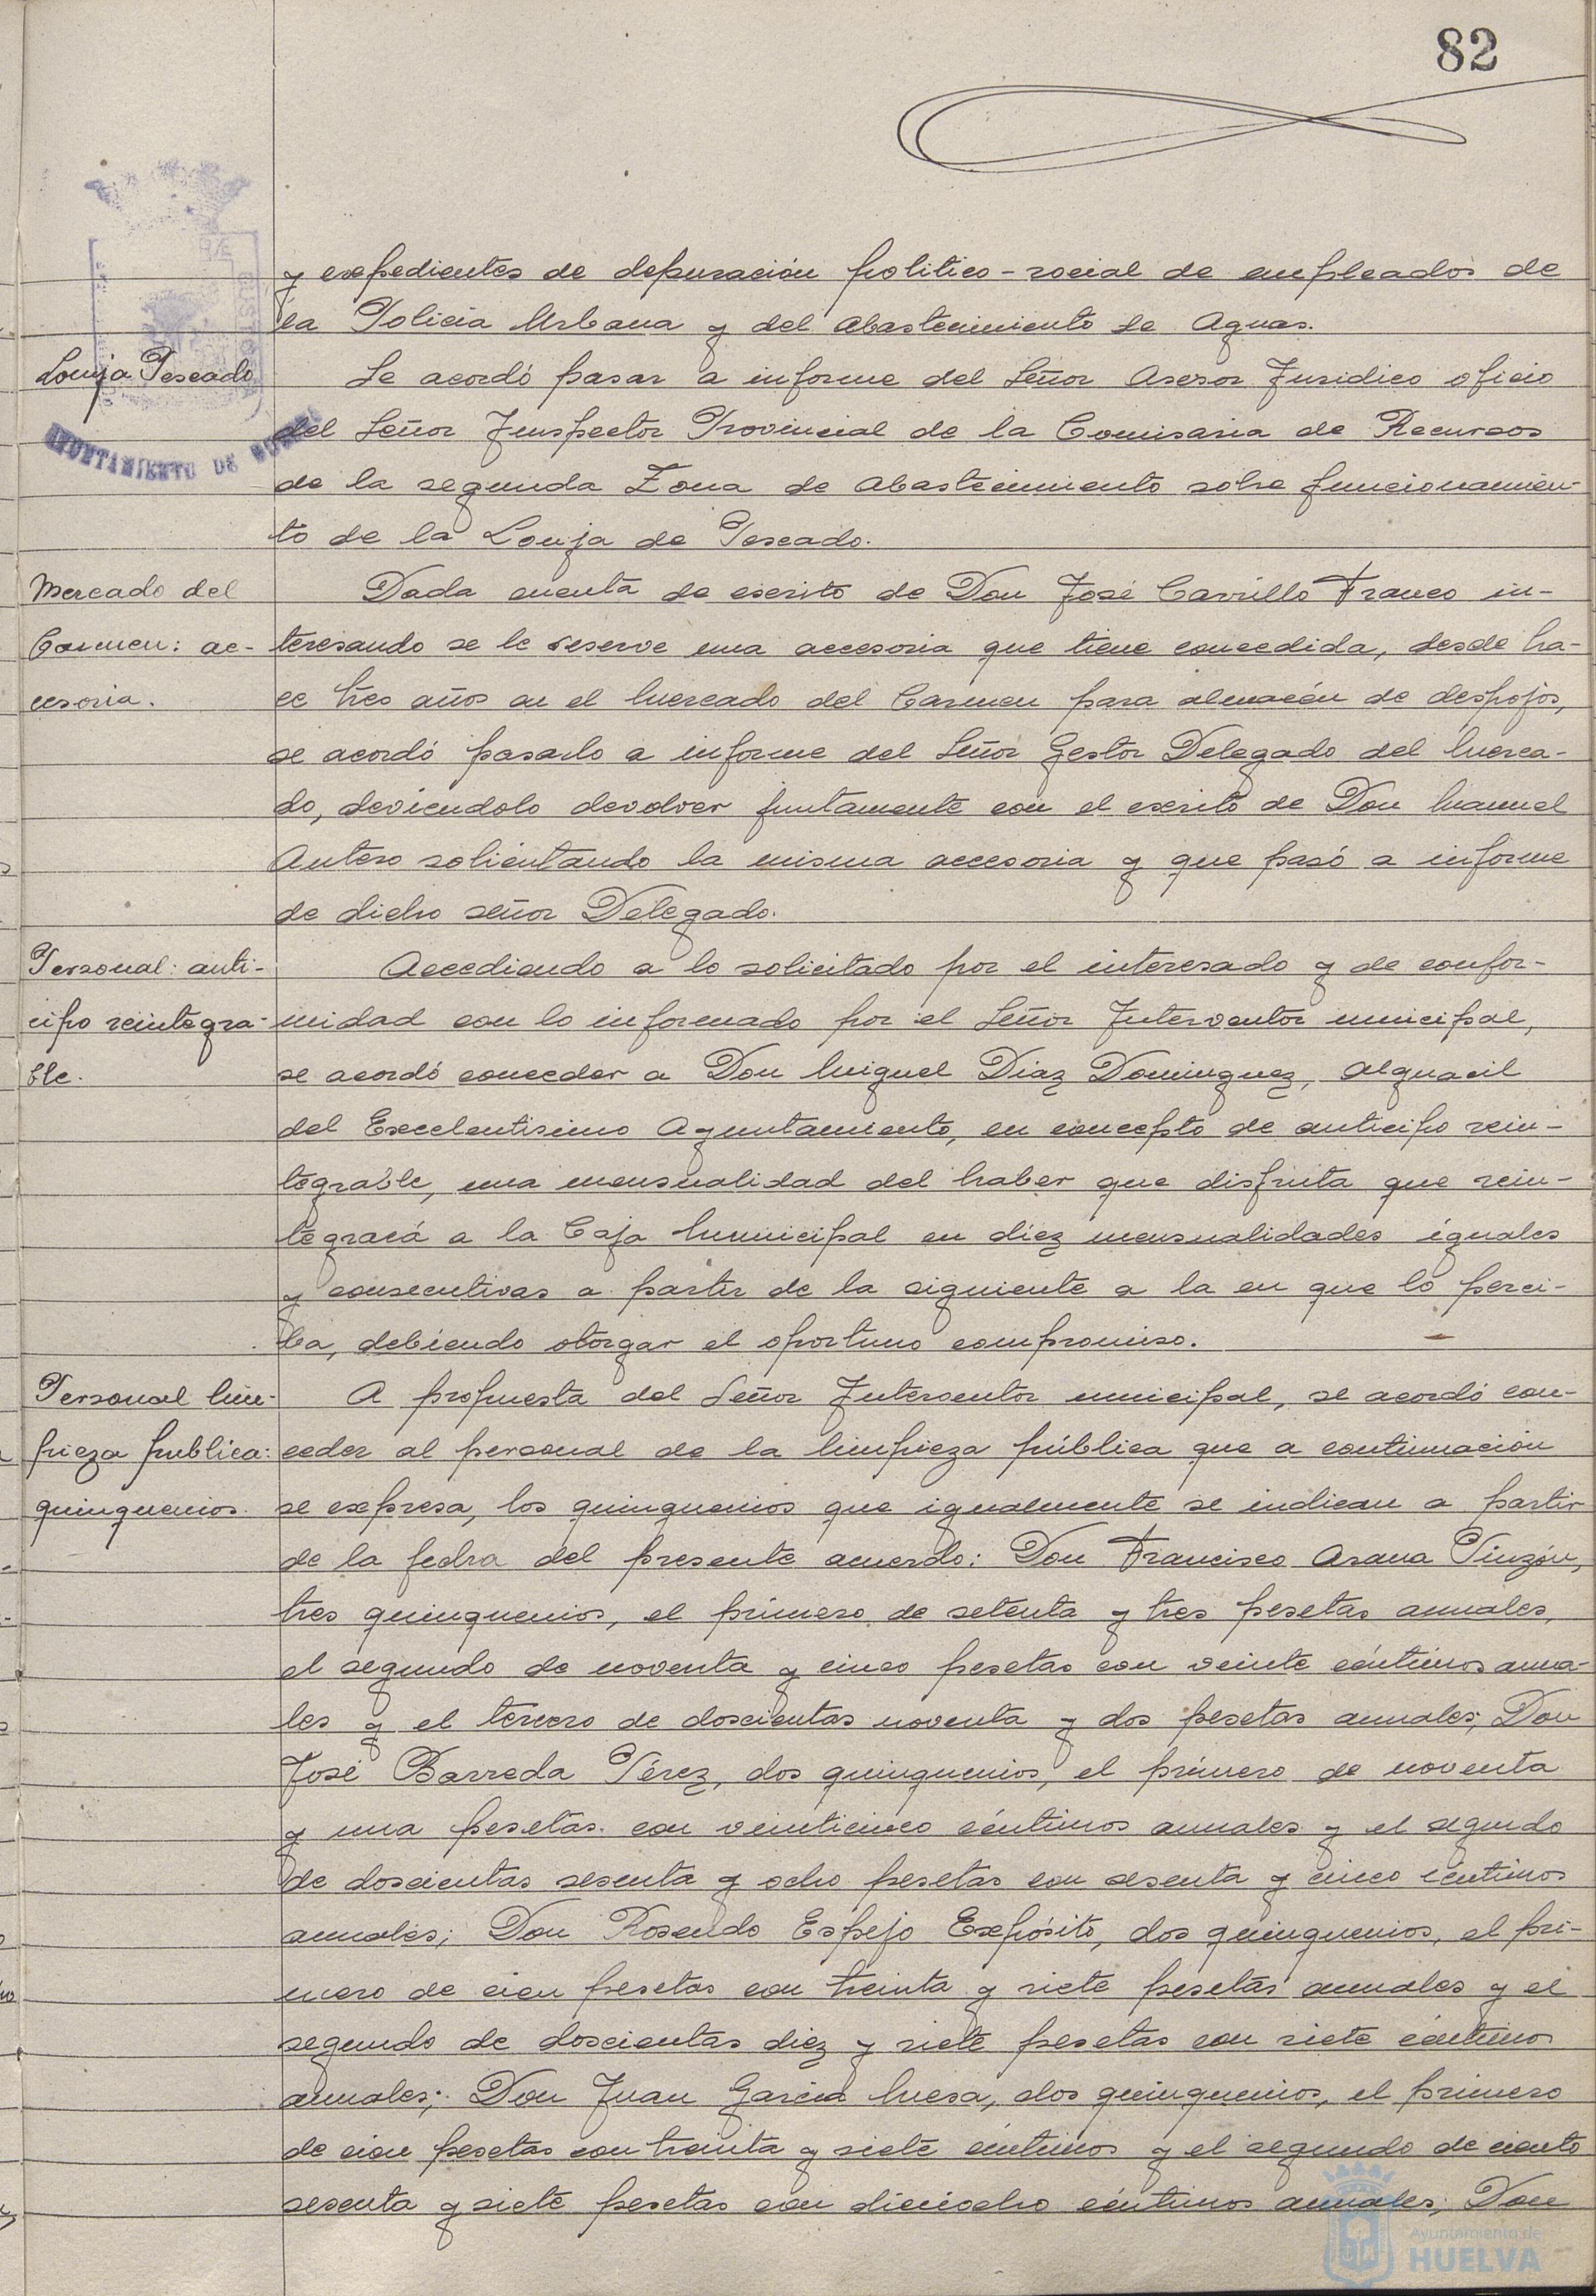 82
y expedientes de depuración politico-social de empleados de
la Policia Urbana y del Abastecimiento de Aguas.
Lonja Pescado
Se acordó pasar a informe del Señor Asesor Juridico oficio
del Señor Inspector Provincial de la Comisaria de Recursos
AYUNTAMIENTO DE
de la segunda Zona de Abastecimiento sobre funcionamien-
to de la Lonja de Pescado.
Mercado del
Carmen: ac-
cesoria.
Dada cuenta de escrito de Don José Carrillo Franco in-
teresando se le reserve una accesoria que tiene concedida, desde ha-
ce tres años en el Mercado del Carmen para almacén de despojos,
se acordó pasarlo a informe del Señor Gestor Delegado del Merca-
do, deviéndolo devolver juntamente con el escrito de Don Manuel
Antero solicitando la misma accesoria y que pasó a informe
de dicho señor Delegado.
Personal: anti-
cipo reintegra-
ble.
Accediendo a lo solicitado por el interesado y de confor-
midad con lo informado por el Señor Interventor municipal,
se acordó conceder a Don Miguel Diaz Dominguez, Alguacil
del Excelentisimo Ayuntamiento, en concepto de anticipo rein-
tegrable, una mensualidad del haber que disfruta que rein-
tegrará a la Caja Municipal en diez mensualidades iguales
y consecutivas a partir de la siguiente a la en que lo perci-
ba, debiendo otorgar el oportuno compromiso.
Personal lim-
pieza publica:
quinquenios.
A propuesta del Señor Interventor municipal, se acordó con-
ceder al personal de la limpieza pública que a continuación
se expresa, los quinquenios que igualmente se indican a partir
de la fecha del presente acuerdo: Don Francisco Arana Pinzón,
tres quinquenios, el primero de setenta y tres pesetas anuales,
el segundo de noventa y cinco pesetas con veinte céntimos anua-
les y el tercero de doscientas noventa y dos pesetas anuales; Don
José Barreda Pérez, dos quinquenios, el primero de noventa
y una pesetas con veinticinco céntimos anuales y el segundo
de doscientas sesenta y ocho pesetas con sesenta y cinco céntimos
anuales; Don Rosendo Espejo Expósito, dos quinquenios, el pri-
mero de cien pesetas con treinta y siete pesetas anuales y el
segundo de doscientas diez y siete pesetas con siete céntimos
anuales; Don Juan Garcia Mesa, dos quinquenios, el primero
de cien pesetas con treinta y siete céntimos y el segundo de ciento
sesenta y siete pesetas con dieciocho céntimos anuales; Don
Ayuntamiento de
HUELVA